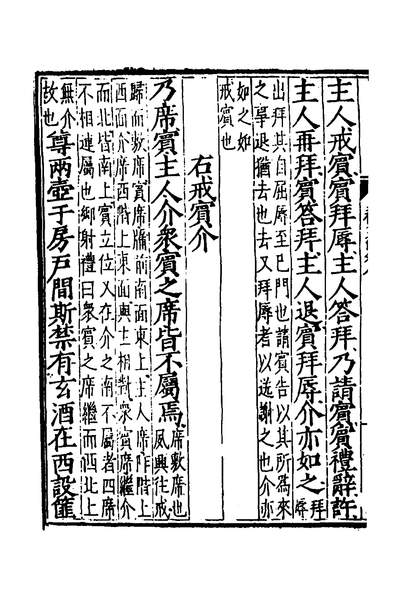 主人戒賓賓拜辱主人答拜乃請賓賓禮辭許
主人再拜賓答拜主人退賓拜辱介亦如之拜辱
出拜其自屈辱至己門也請賓告以其所爲來
之學退猶去也去又拜辱者以送謝之也介亦
如之如
戒賓也
右戒賓介
乃席賓主人介衆賓之席皆不屬焉席敷席也夙興往戒
歸而敷席賓席牖前南面東上主人席阼階上
西面介席西階上東面與主相對衆賓席繼介
而北皆南上賓立位又在介之南不屬者四席
不相連屬也鄉射禮曰衆賓之席繼而西北上
無介故也尊兩壺于房戶間斯禁有玄酒在西設篚